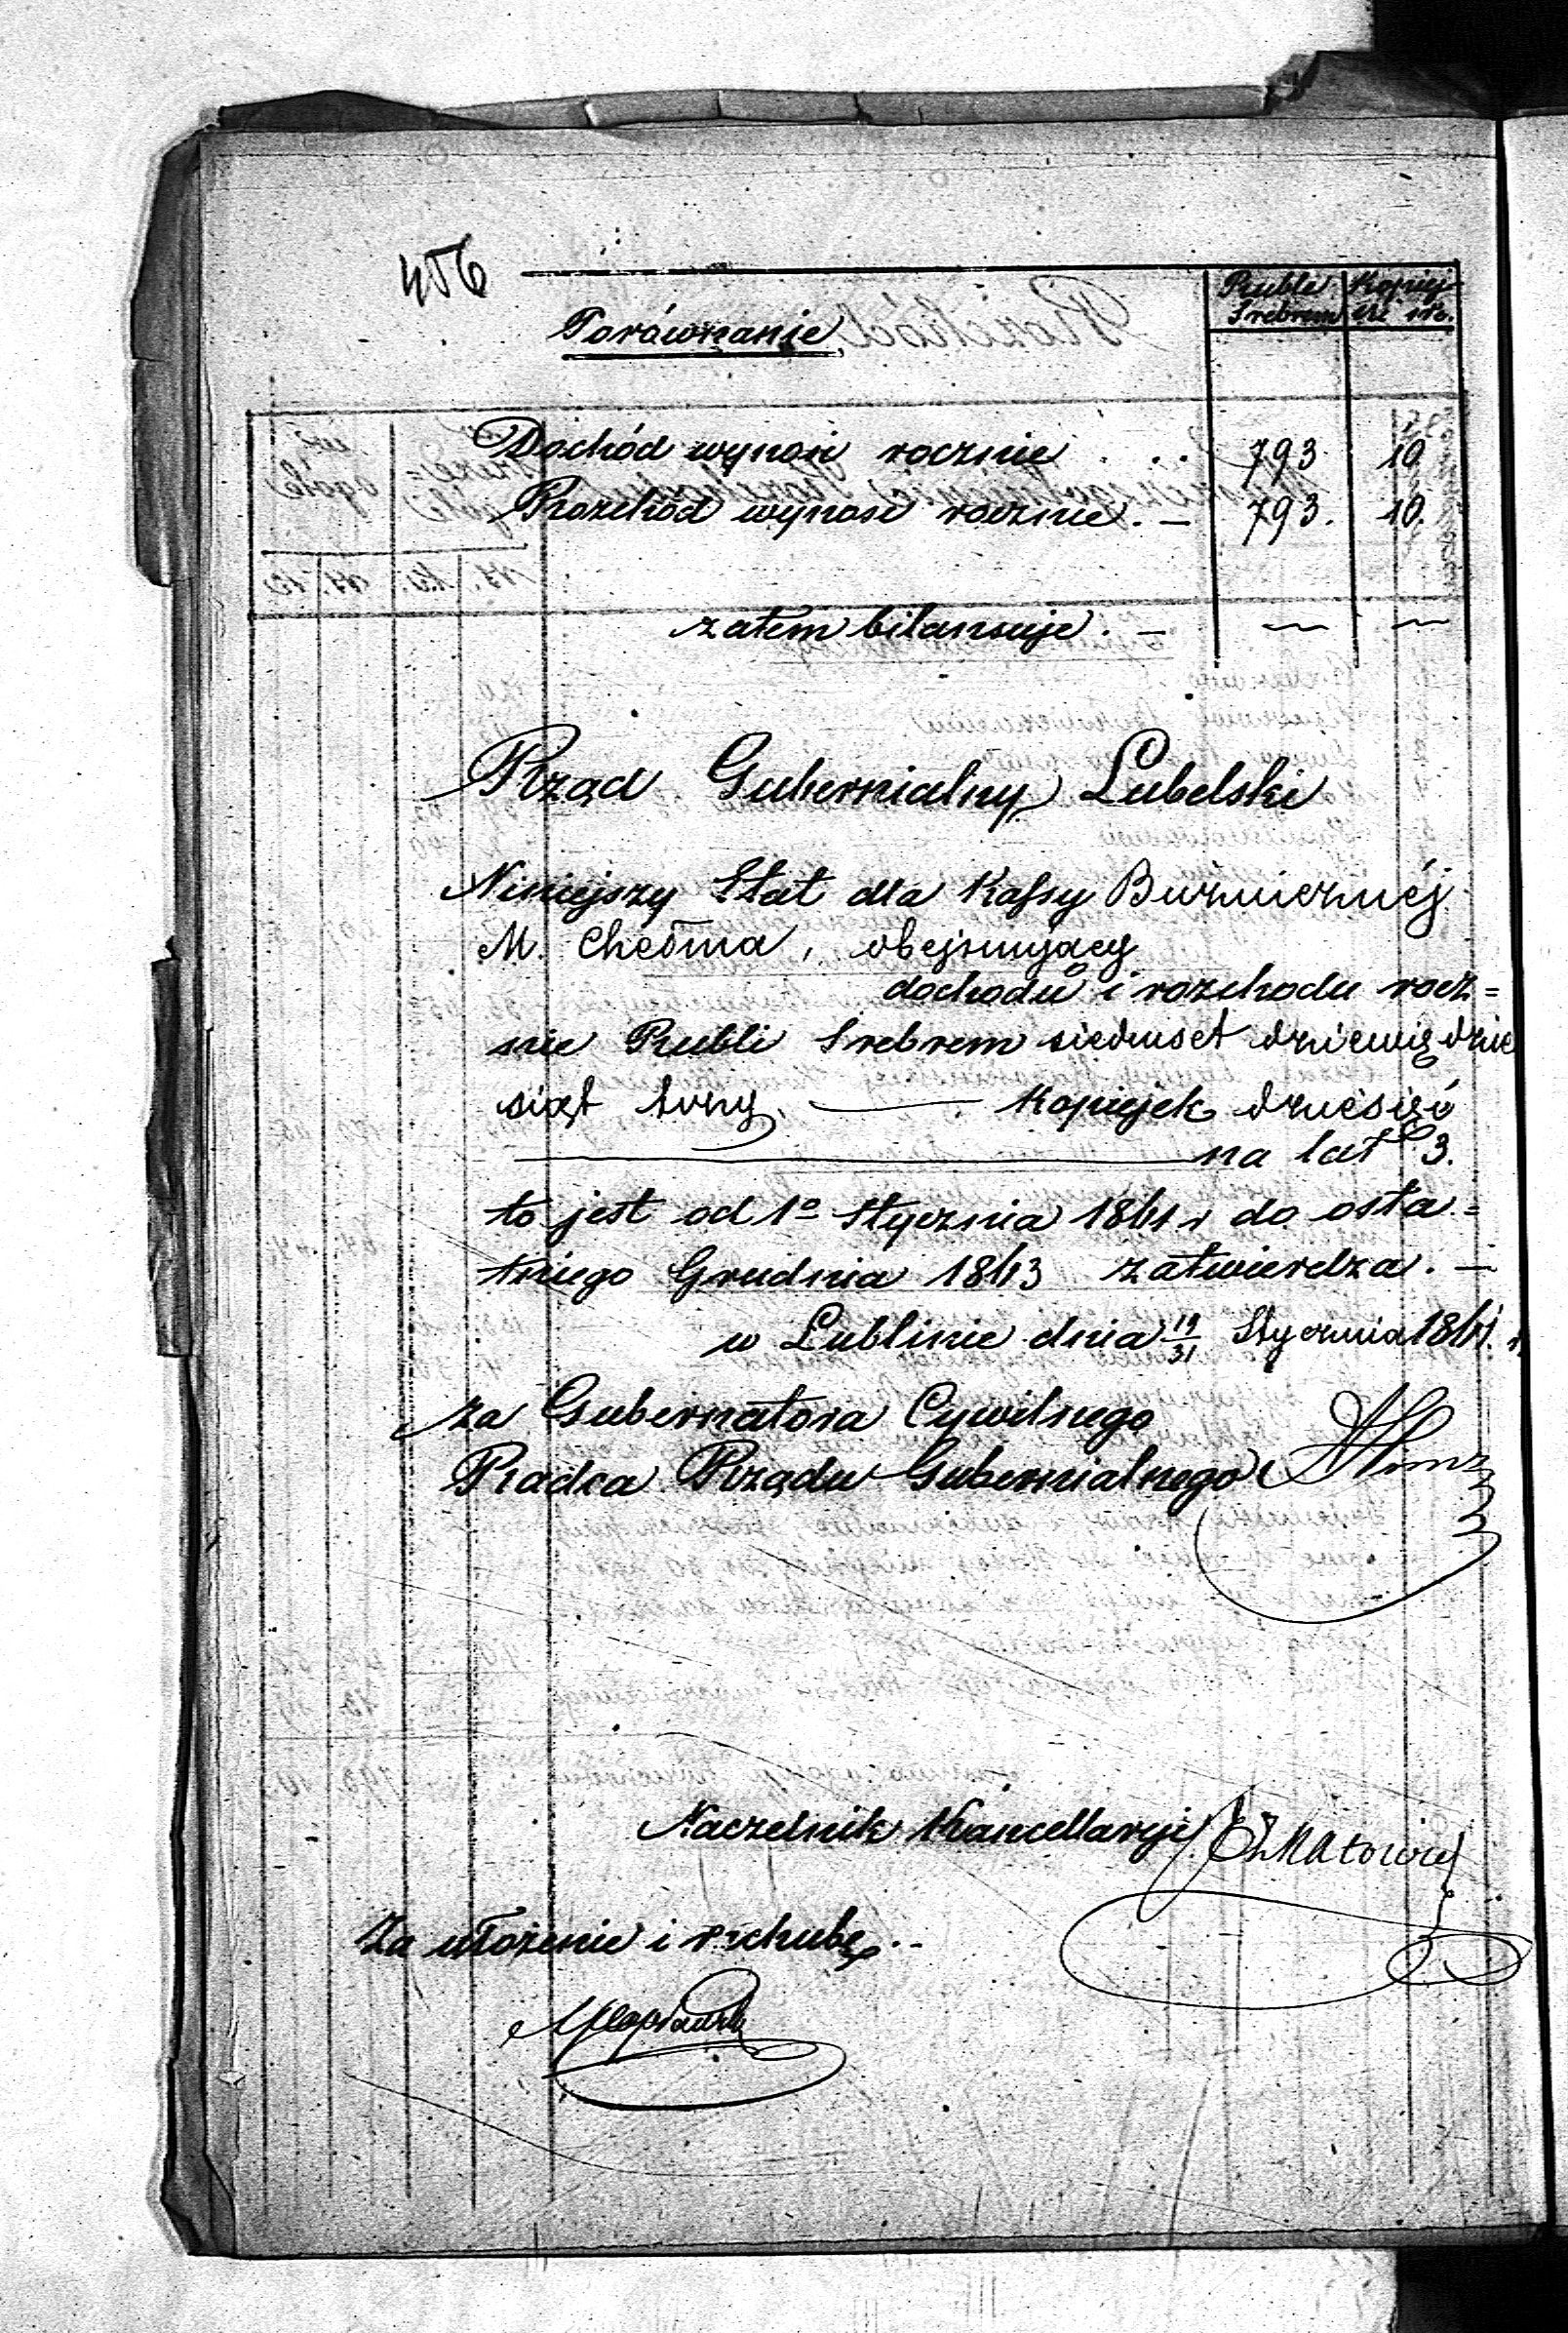 456
Porównanie
Ruble Srebrem
Kopiej
Dochód wynosi rocznie . . . 793. 10
Rozchód wynosi rocznie. — 793. 10.
zatem bilansuje. —
Rząd Gubernialny Lubelski
Niniejszy Etat dla Kassy Bużnicznéj
M. Chełma, obejmujący
dochodu i rozchodu rocz=
nie Rubli Srebrem siedmset dziewiędzie
siąt trzy. — Kopiejek dziesięć
na lat 3.
to jest od 1º Stycznia 1861 r do osta=
tniego Grudnia 1863 zatwierdza. —
w Lublinie dnia 19/31 Stycznia 1861. r.
za Gubernatora Cywilnego
Radca Rządu Gubernialnego
Naczelnik Kancellaryi
Za ułożenie i rachubę. -